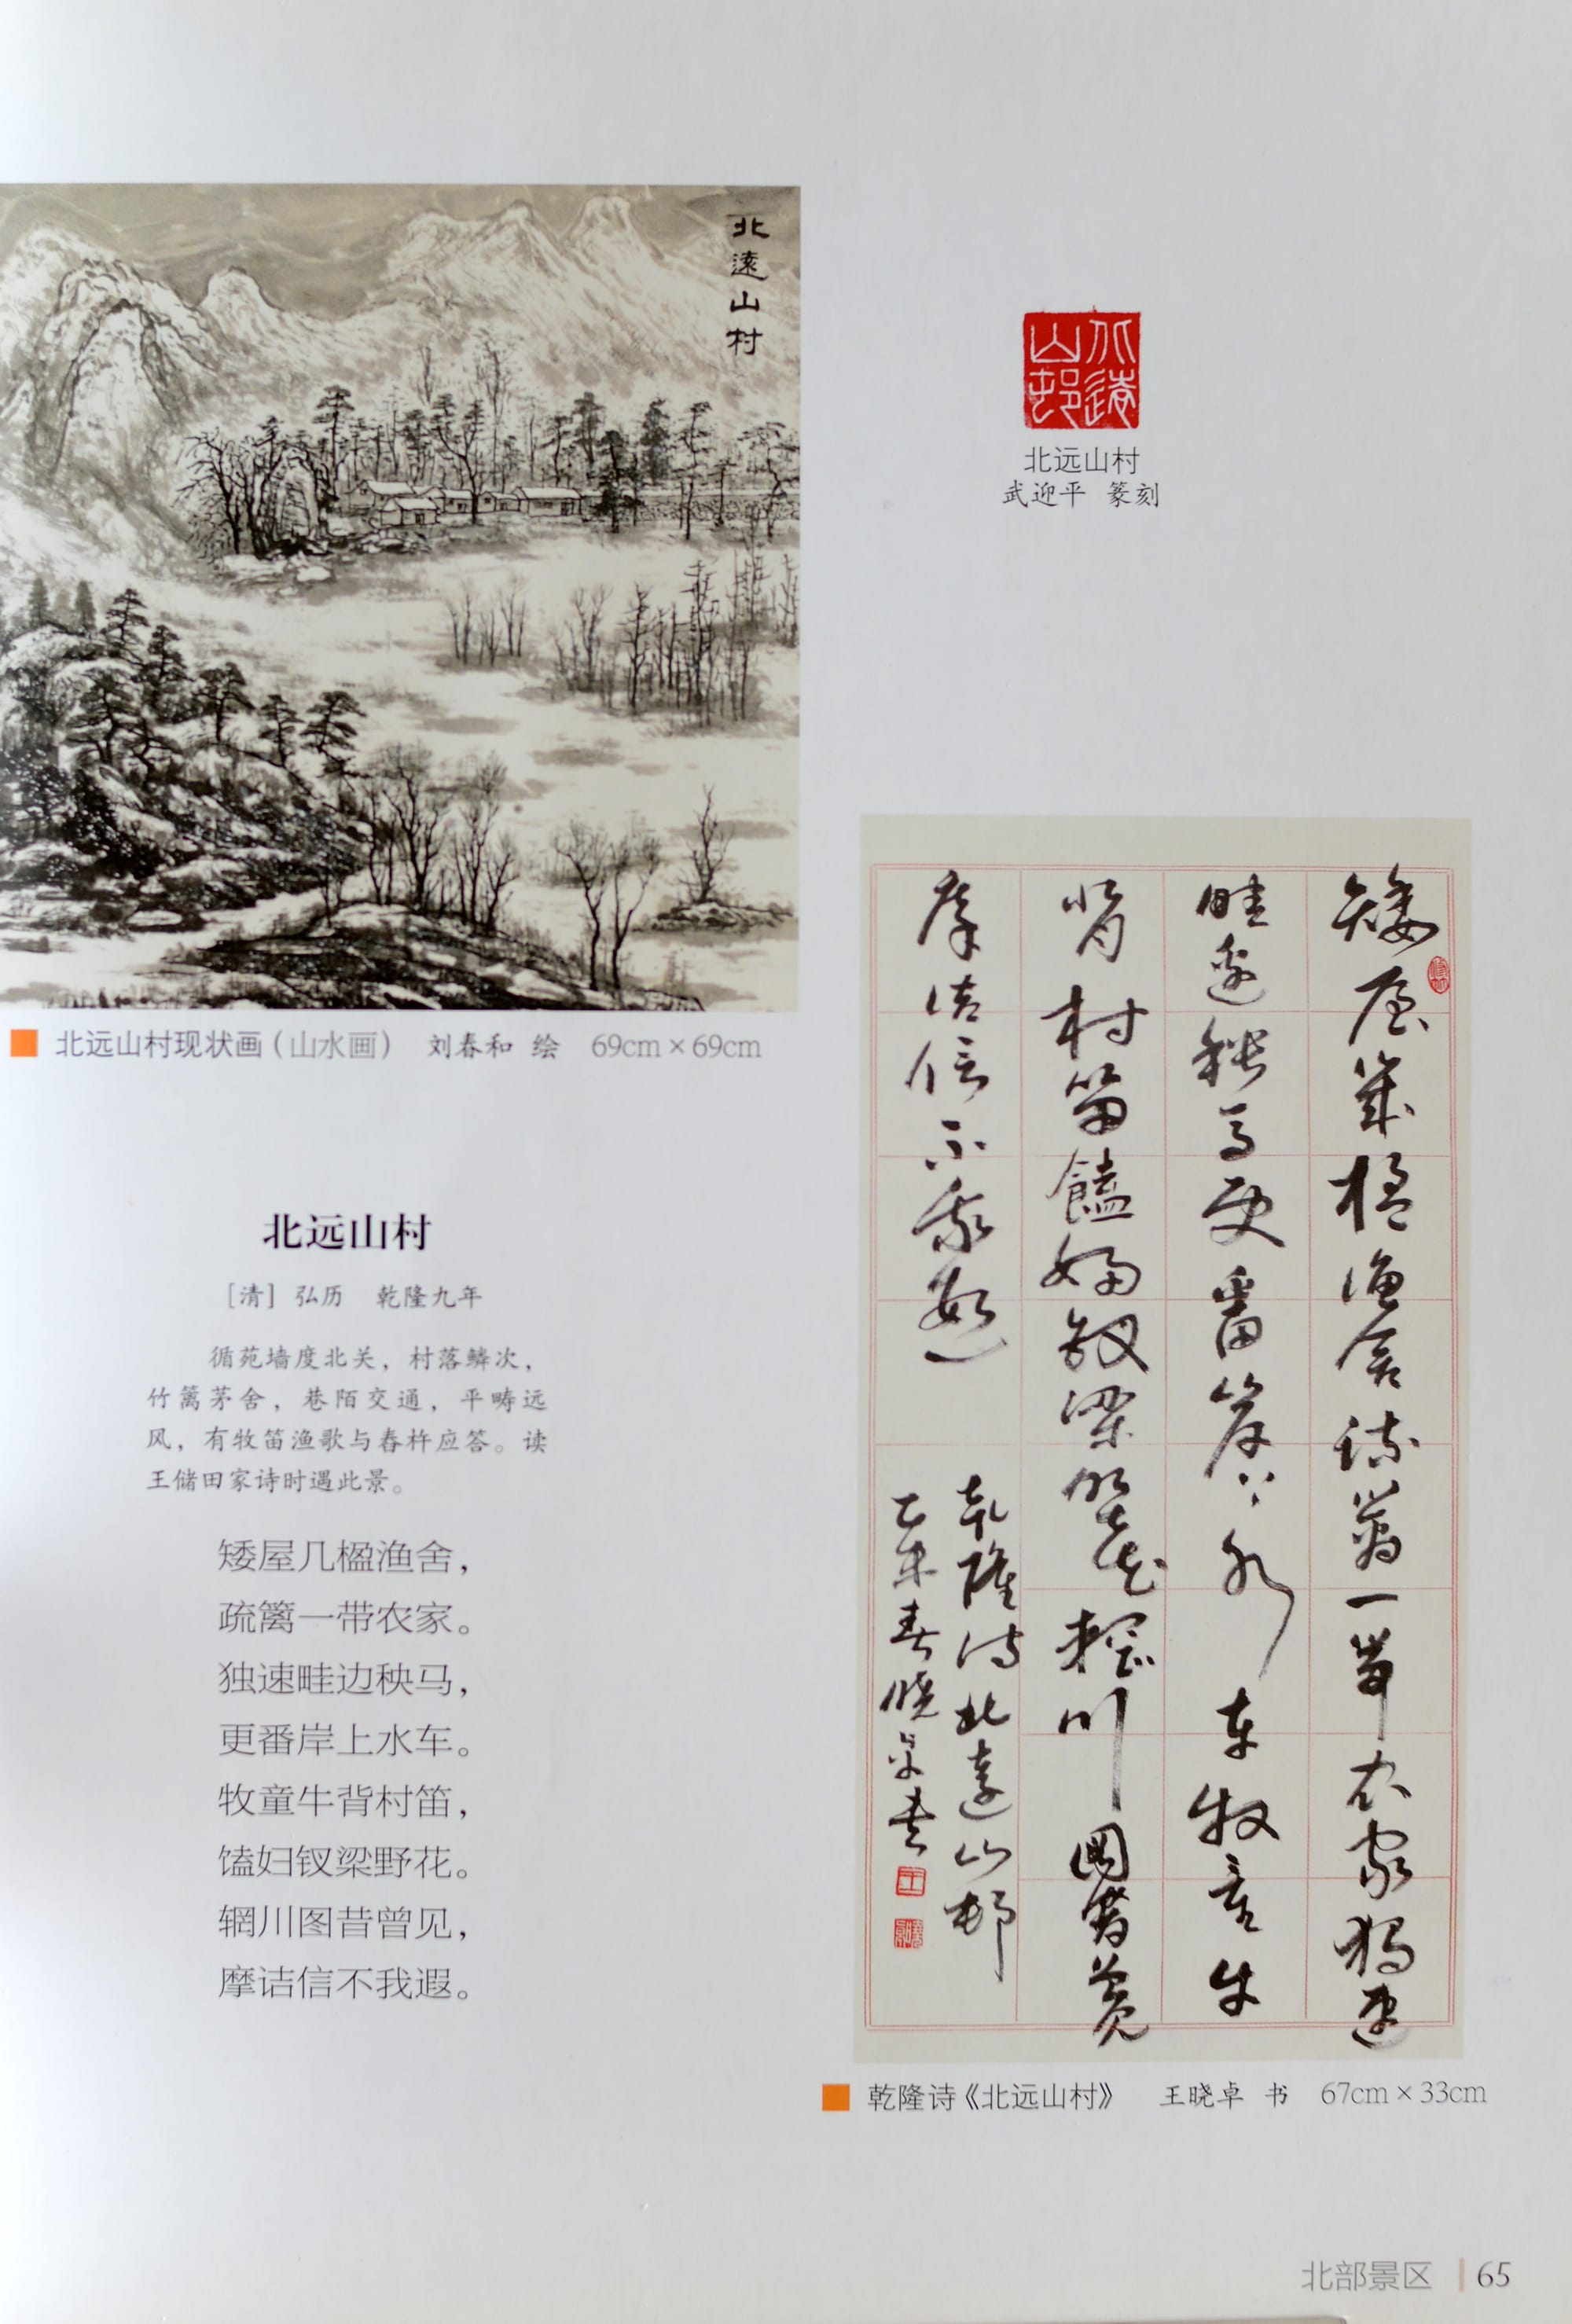 北遠山村
北远山村
武迎平 篆刻
北远山村现状画（山水画） 刘春和 绘 69cm×69cm
北远山村
［清］弘历 乾隆九年
循苑墙度北关，村落鳞次，
竹篱茅舍，巷陌交通，平畴远
风，有牧笛渔歌与舂杵应答。读
王储田家诗时遇此景。
矮屋几楹渔舍，
疏篱一带农家。
独速畦边秧马，
更番岸上水车。
牧童牛背村笛，
馌妇钗梁野花。
辋川图昔曾见，
摩诘信不我遐。
矮屋幾楹漁舍疏篱一帶农家獨速
畦邊秧馬更番岸上水車牧童牛
背村笛饁婦釵梁野花輞川圖昔曾見
摩诘信不我遐
乾隆诗北遠山邨
乙未春曉卓書
乾隆诗《北远山村》 王晓卓 书 67cm×33cm
北部景区 65